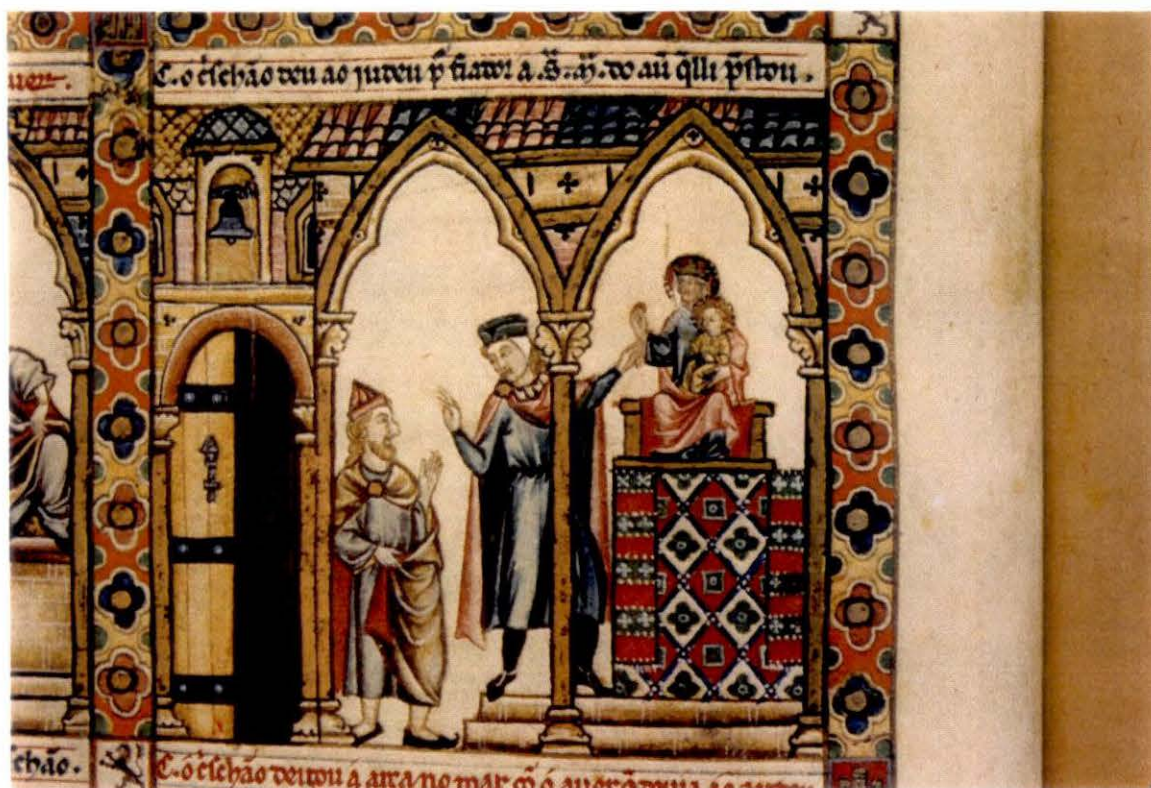 uer.
C. o c̃ſchão deu ao judeu p̃ fiador a .S̃. m̃. do au̅ q̃lli p̃ſtou.
chão.
C. o c̃ſchão deitou a arca no mar